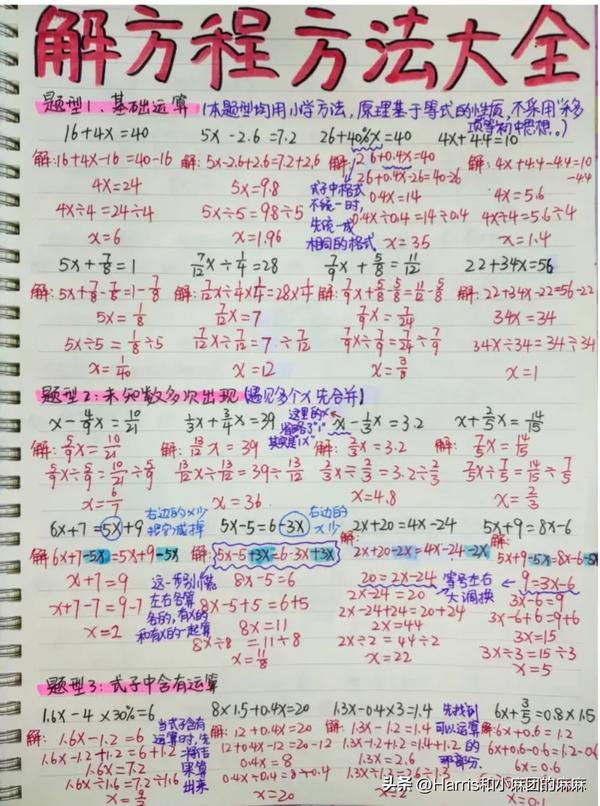 解方程方法大全
题型1、基础运算 (本题型均用小学方法,原理基于等式的性质,不采用“移项”等初中思想。)
16+4x=40 5x-2.6=7.2 26+40%x=40 4x+4.4=10
解:16+4x-16=40-16 解:5x-2.6+2.6=7.2+2.6 解:26+0.4x=40 解:4x+4.4-4.4=10-4.4
4x=24 5x=9.8 26+0.4x-26=40-26 4x=5.6
式子中格式不统一时,先统一成相同的格式
0.4x=14
4x÷4=24÷4 5x÷5=9.8÷5 0.4x÷0.4=14÷0.4 4x÷4=5.6÷4
x=6 x=1.96 x=35 x=1.4
5x+7/8=1 7/12x÷1/4=28 7/9x+5/8=11/12 22+34x=56
解:5x+7/8-7/8=1-7/8 解:7/12x÷1/4×1/4=28×1/4 解:7/9x+5/8-5/8=11/12-5/8 解:22+34x-22=56-22
5x=1/8 7/12x=7 7/9x=7/24 34x=34
5x÷5=1/8÷5 7/12x÷7/12=7÷7/12 7/9x÷7/9=7/24÷7/9 34x÷34=34÷34
x=1/40 x=12 x=3/8 x=1
题型2:未知数多次出现(遇见多个x先合并)
x-4/9x=10/21 1/3x+3/4x=39 x-1/3x=3.2 x+2/5x=14/15
这里的x省略了“1”其实是“1x”
解:5/9x=10/21 解:13/12x=39 解:2/3x=3.2 解:7/5x=14/15
5/9x÷5/9=10/21÷5/9 13/12x÷13/12=39÷13/12 2/3x÷2/3=3.2÷2/3 7/5x÷7/5=14/15÷7/5
x=6/7 x=36 x=4.8 x=2/3
右边的x少把它减掉 右边的x少
6x+7=5x+9 5x-5=6-3x 2x+20=4x-24 5x+9=8x-6
解:6x+7-5x=5x+9-5x 解:5x-5+3x=6-3x+3x 解:2x+20-2x=4x-24-2x 解:5x+9-5x=8x-6-5x
x+7=9 8x-5=6 20=2x-24 9=3x-6
这一步别小瞧左右各算各的,有x的和有x的一起算
等号左右大调换
x+7-7=9-7 8x-5+5=6+5 2x-24=20 3x-6=9
x=2 8x=11 2x-24+24=20+24 3x-6+6=9+6
8x÷8=11÷8 2x=44 3x=15
x=11/8 2x÷2=44÷2 3x÷3=15÷3
x=22 x=5
题型3:式子中含有运算
1.6x-4×30%=6 8×1.5+0.4x=20 1.3x-0.4×3=1.4 6x+3/5=0.8×1.5
当式子含有运算时,先将结果算出来
先找到可以运算的那部分.
解:1.6x-1.2=6 解:12+0.4x=20 解:1.3x-1.2=1.4 解:6x+0.6=1.2
1.6x-1.2+1.2=6+1.2 12+0.4x-12=20-12 1.3x-1.2+1.2=1.4+1.2 6x+0.6-0.6=1.2-0.6
1.6x=7.2 0.4x=8 1.3x=2.6 6x=0.6
1.6x÷1.6=7.2÷1.6 0.4x÷0.4=8÷0.4
x=9/2 x=20 x=2
头条 @Harris和小麻团的麻麻